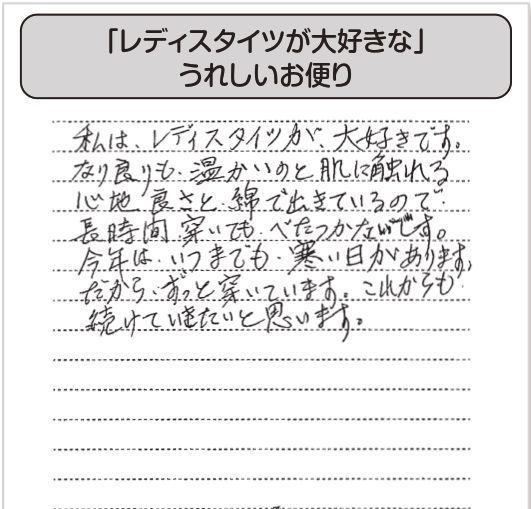 「レディスタイツが大好きな」
うれしいお便り
私は、レディスタイツが、大好きです。
なり良りも、温かいのと肌に触れる
心地良さと、綿で出きているので
長時間穿いても、べたつかないです。
今年は、いつまでも、寒い日があります。
だから、ずっと穿いています。これからも
続けていきたいと思います。